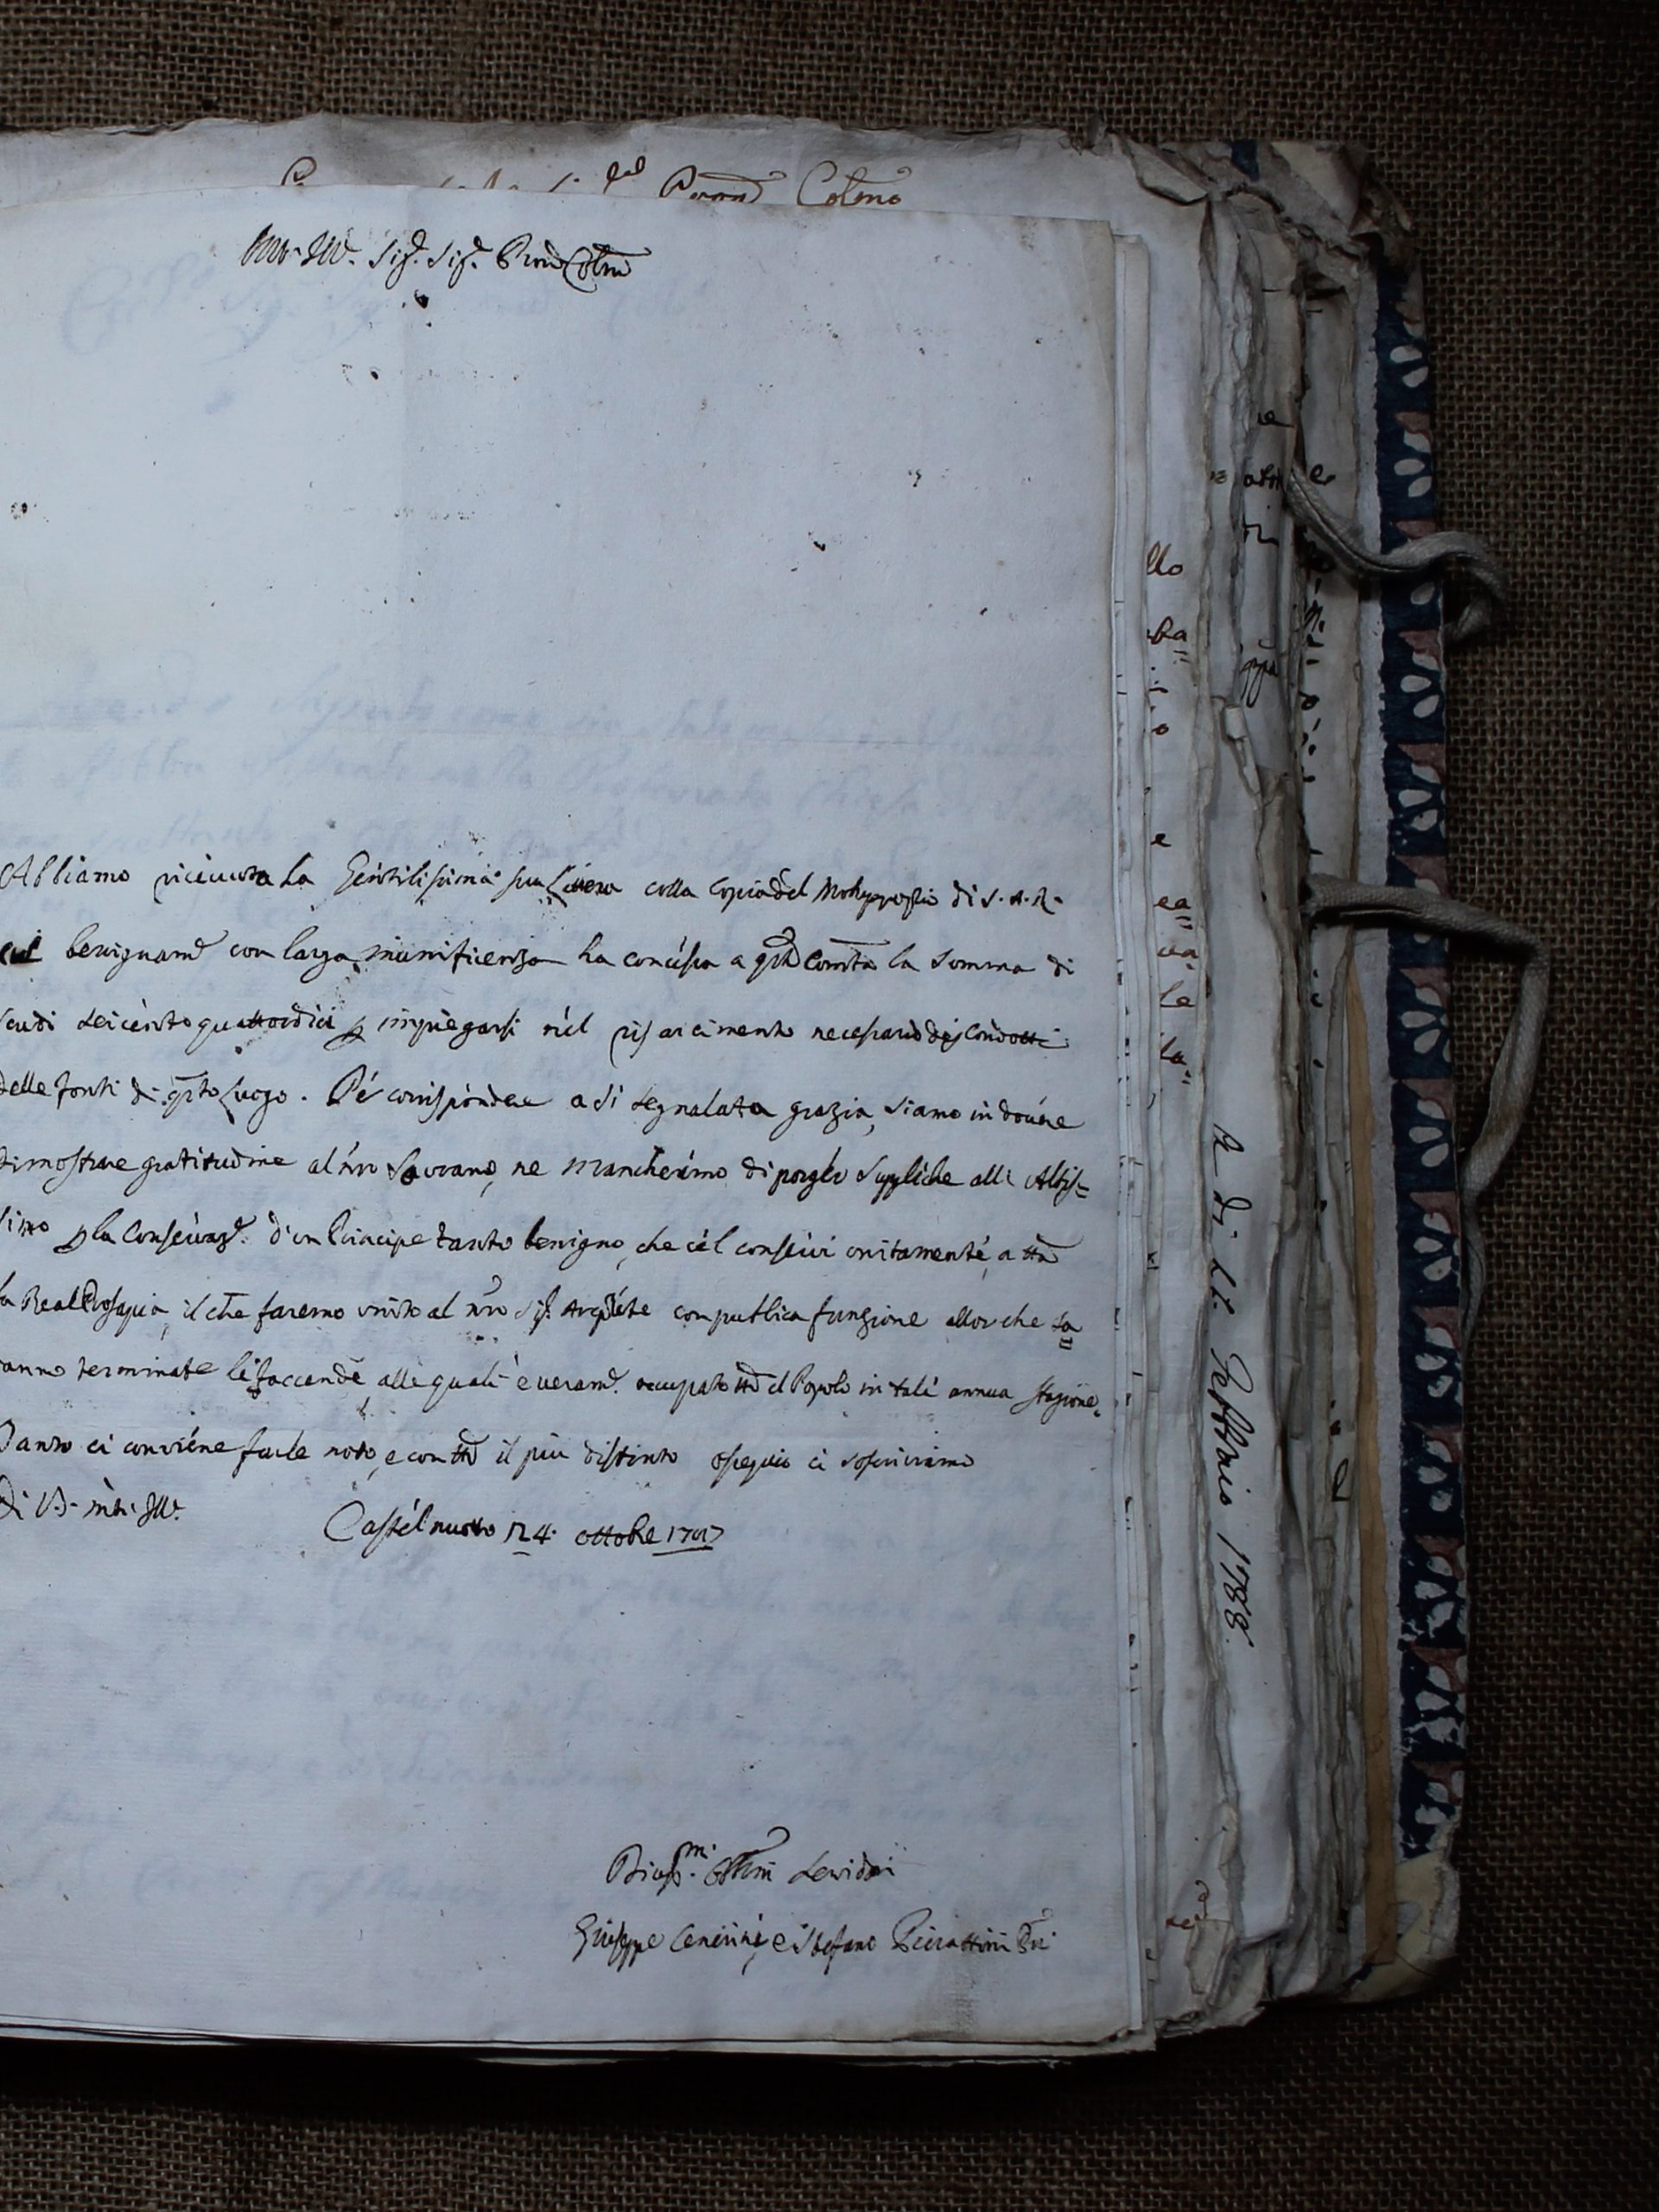 Pad. Colmo
Mto. Ill. Sig. Sig. Pron. Colmo
Abbiamo ricevuta la Gentilissima sua Lettera colla Copia del Motuproprio di S. A. R.
benignamᵉ con larga munificenza ha concessa a qta Comtà la Somma di
scudi seicento quattordici p impiegarsi nel risarcimento necessario dei Condotti
delle fonti di qto Luogo. Per corrispondere a sì segnalata grazia, siamo in dovere
dimostrare gratitudine al nro Sovrano, ne mancheremo di porger Suppliche all' Altis=
simo p la Conservazᵉ. d'un Principe tanto benigno, che cel conservi unitamente, a tta
la Real Prosapia, il che faremo unito al nro Sig. Arcipte con pubblica funzione allor che sa=
ranno terminate le faccende, alle quali è veramᵉ. occupato tto il Popolo in tale annua stagione.
Tanto ci conviene farle noto, e con tto il più distinto ossequio ci soscriviamo
Di V. S. mto. Ill.
Castelnuovo 24. ottobre 1787
Obbmi Servidori
Giuseppe Cenerini, e Stefano Pierattini
A dì 21. Febbraio 1788.
llo
ba=
io
o
e
ea=
ua
le
la=